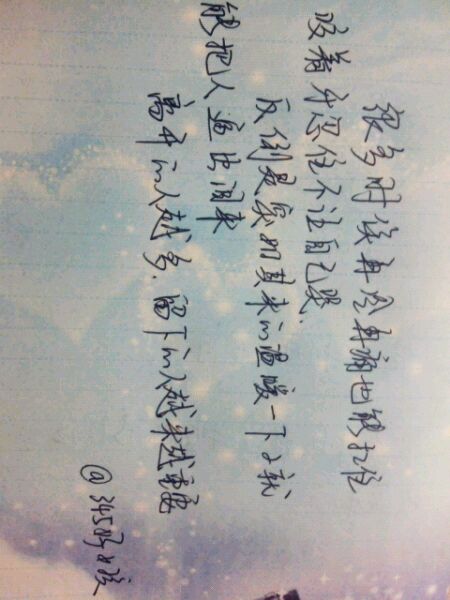 很多时候再冷再痛也能扛住
咬着牙忍住不让自己哭.
反倒是突如其来的温暖一下子就
能把人逼出泪来
离开的人越多,留下的人越来越重要
@345